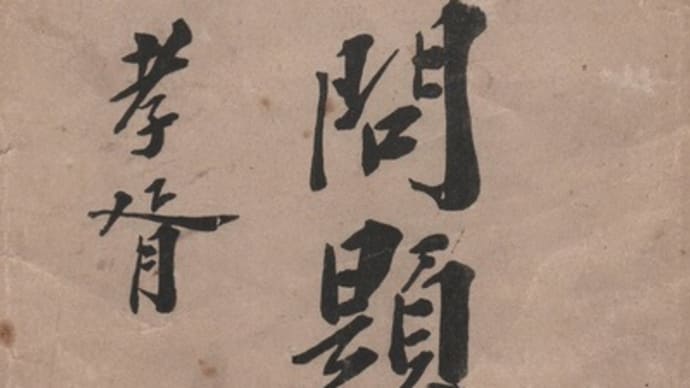 問題
孝胥